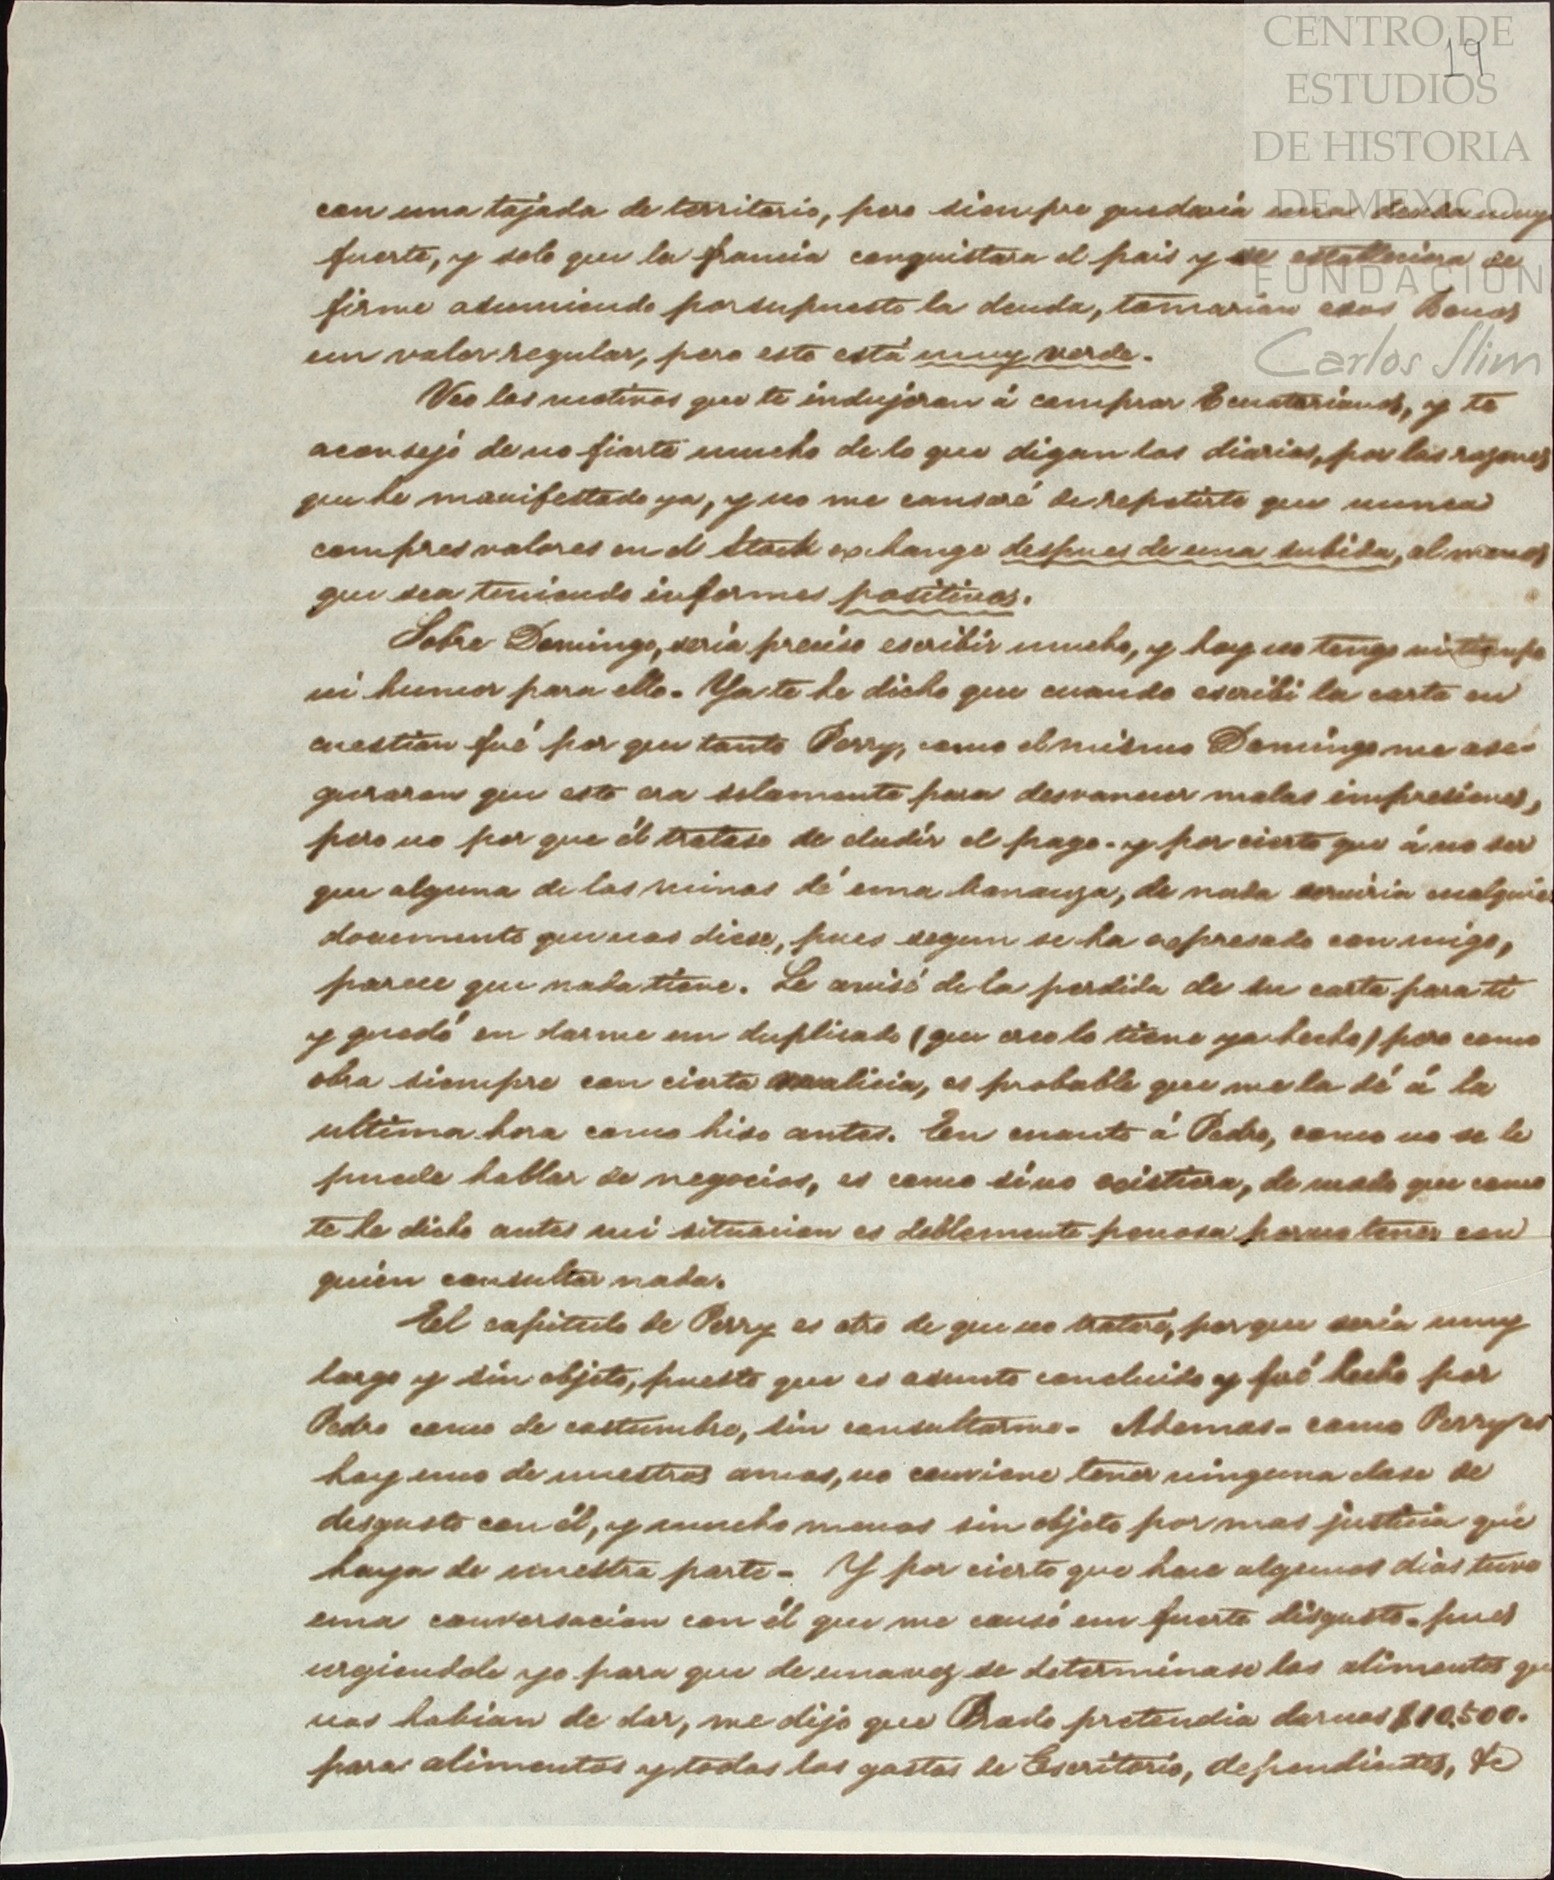 CENTRO DE
19
ESTUDIOS
DE HISTORIA
DE MEXICO
FUNDACIÓN
Carlos Slim
con una tajada de territorio, pero siempre quedaria una deuda muy
fuerte, y solo que la francia conquistara el pais y se estableciera de
firme asumiendo por supuesto la deuda, tomarian esos Bonos
un valor regular, pero esto está muy verde.
Veo los motivos que te indujeron á comprar Ecuatorianos, y te
aconsejó de no fiarte mucho de lo que digan los diarios, por las razones
que he manifestado ya, y no me cansaré de repetirte que nunca
compres valores en el Stock exchange despues de una subida, al menos
que sea teniendo informes positivos.
Sobre Domingo, sería preciso escribir mucho, y hoy no tengo ni tiempo
ni humor para ello. Ya te he dicho que cuando escribi la carta en
cuestion fué por que tanto Perry, como el mismo Domingo me ase-
guraron que esto era solamente para desvanecer malas impresiones,
pero no por que él tratase de eludir el pago. y por cierto que á no ser
que alguna de las minas dé una bonanza, de nada serviria cualquier
documento que nos diese, pues segun se ha expresado con migo,
parece que nada tiene. Le avisé de la perdida de su carta para ti
y quedó en darme un duplicado (que creo lo tiene ya hecho) pero como
obra siempre con cierta malicia, es probable que me la dé á la
ultima hora como hiso antes. En cuanto á Pedro, como no se le
puede hablar de negocios, es como sino existiera, de modo que como
te he dicho antes mi situacion es doblemente penosa por no tener con
quien consultar nada.
El capitulo de Perry es otro de que no trataré, por que sería muy
largo y sin objeto, puesto que es asunto concluido y fué hecho por
Pedro como de costumbre, sin consultarme. Ademas. como Perry es
hoy uno de nuestros amos, no conviene tener ninguna clase de
desgusto con él, y mucho menos sin objeto por mas justicia que
haya de nuestra parte. Y por cierto que hace algunos dias tuve
una conversacion con él que me causó un fuerte disgusto. pues
urgiendole yo para que de una vez se determinase los alimentos que
nos habian de dar, me dijo que Prado pretendia darnos $10,500.
para alimentos y todos los gastos de Escritorio, dependientes, &c